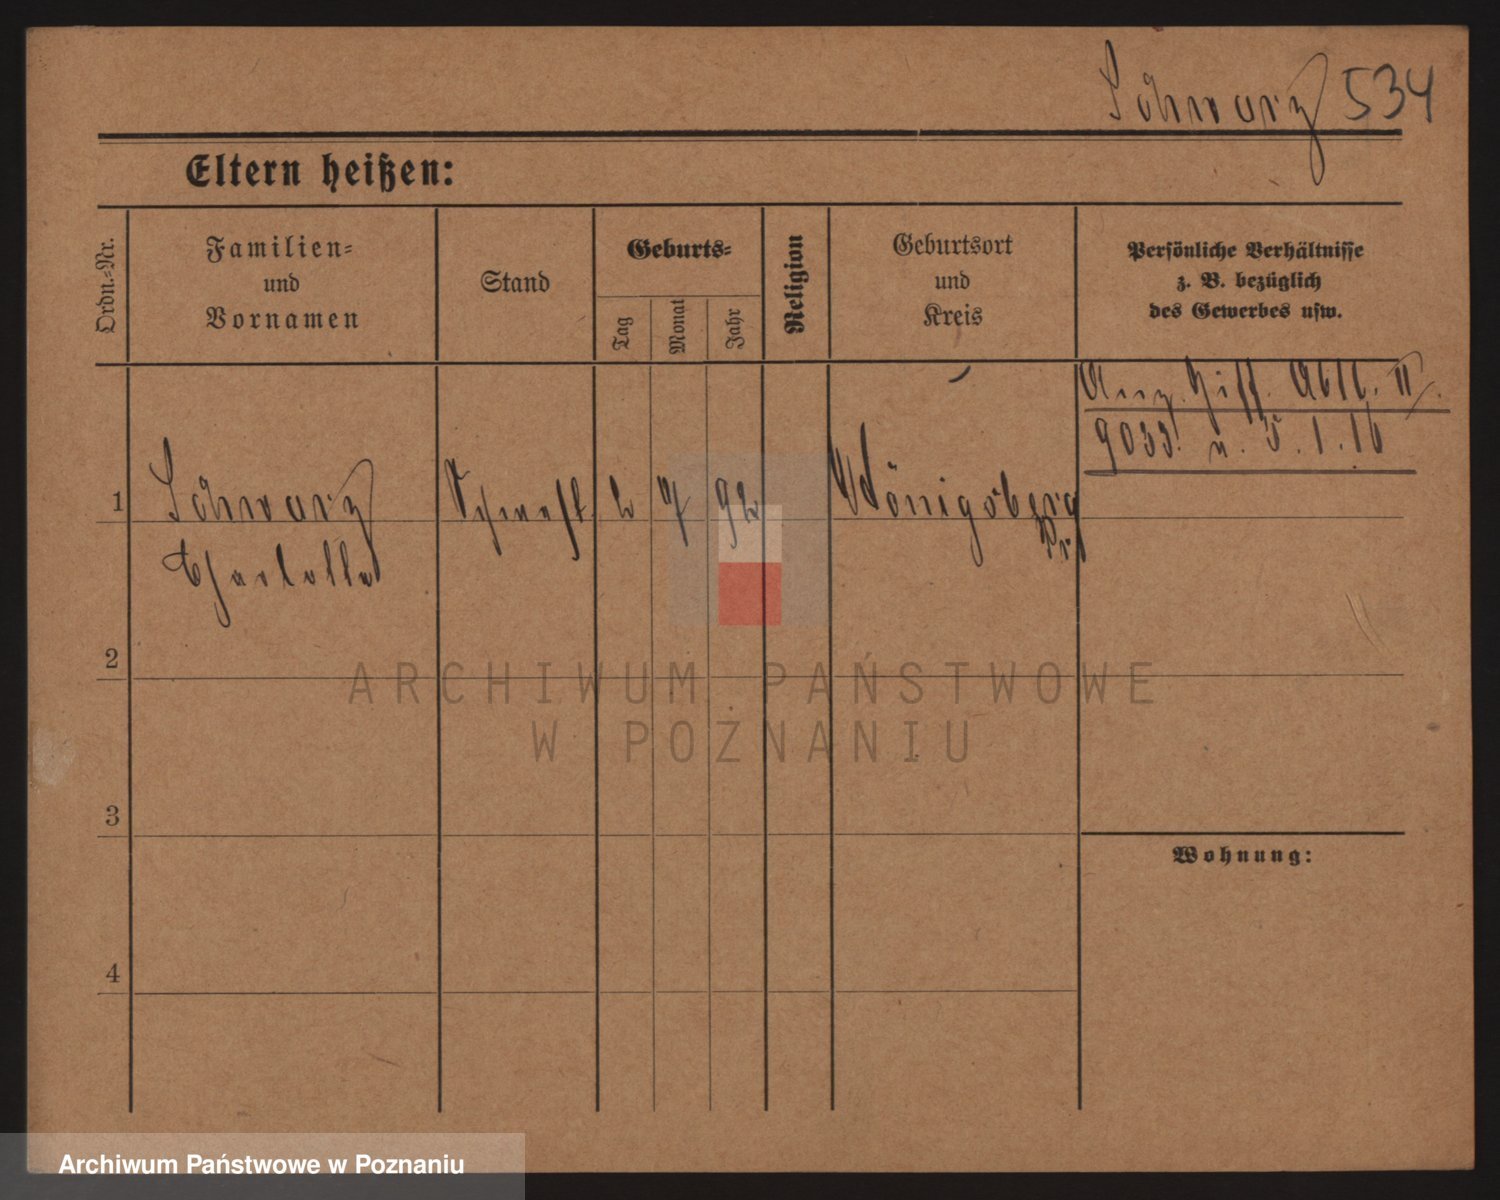 Schwarz 534
Eltern heißen:
Ordn.-Nr.
Familien-
und
Vornamen
Stand
Geburts-
Tag
Monat
Jahr
Religion
Geburtsort
und
Kreis
Persönliche Verhältnisse
z. B. bezüglich
des Gewerbes usw.
Abtl. II.
9033. v. 5.1.16
1
Schwarz
Charlotte
2 7 92
Königsberg
Pr.
2
3
4
Wohnung:
ARCHIWUM PAŃSTWOWE
W POZNANIU
Archiwum Państwowe w Poznaniu